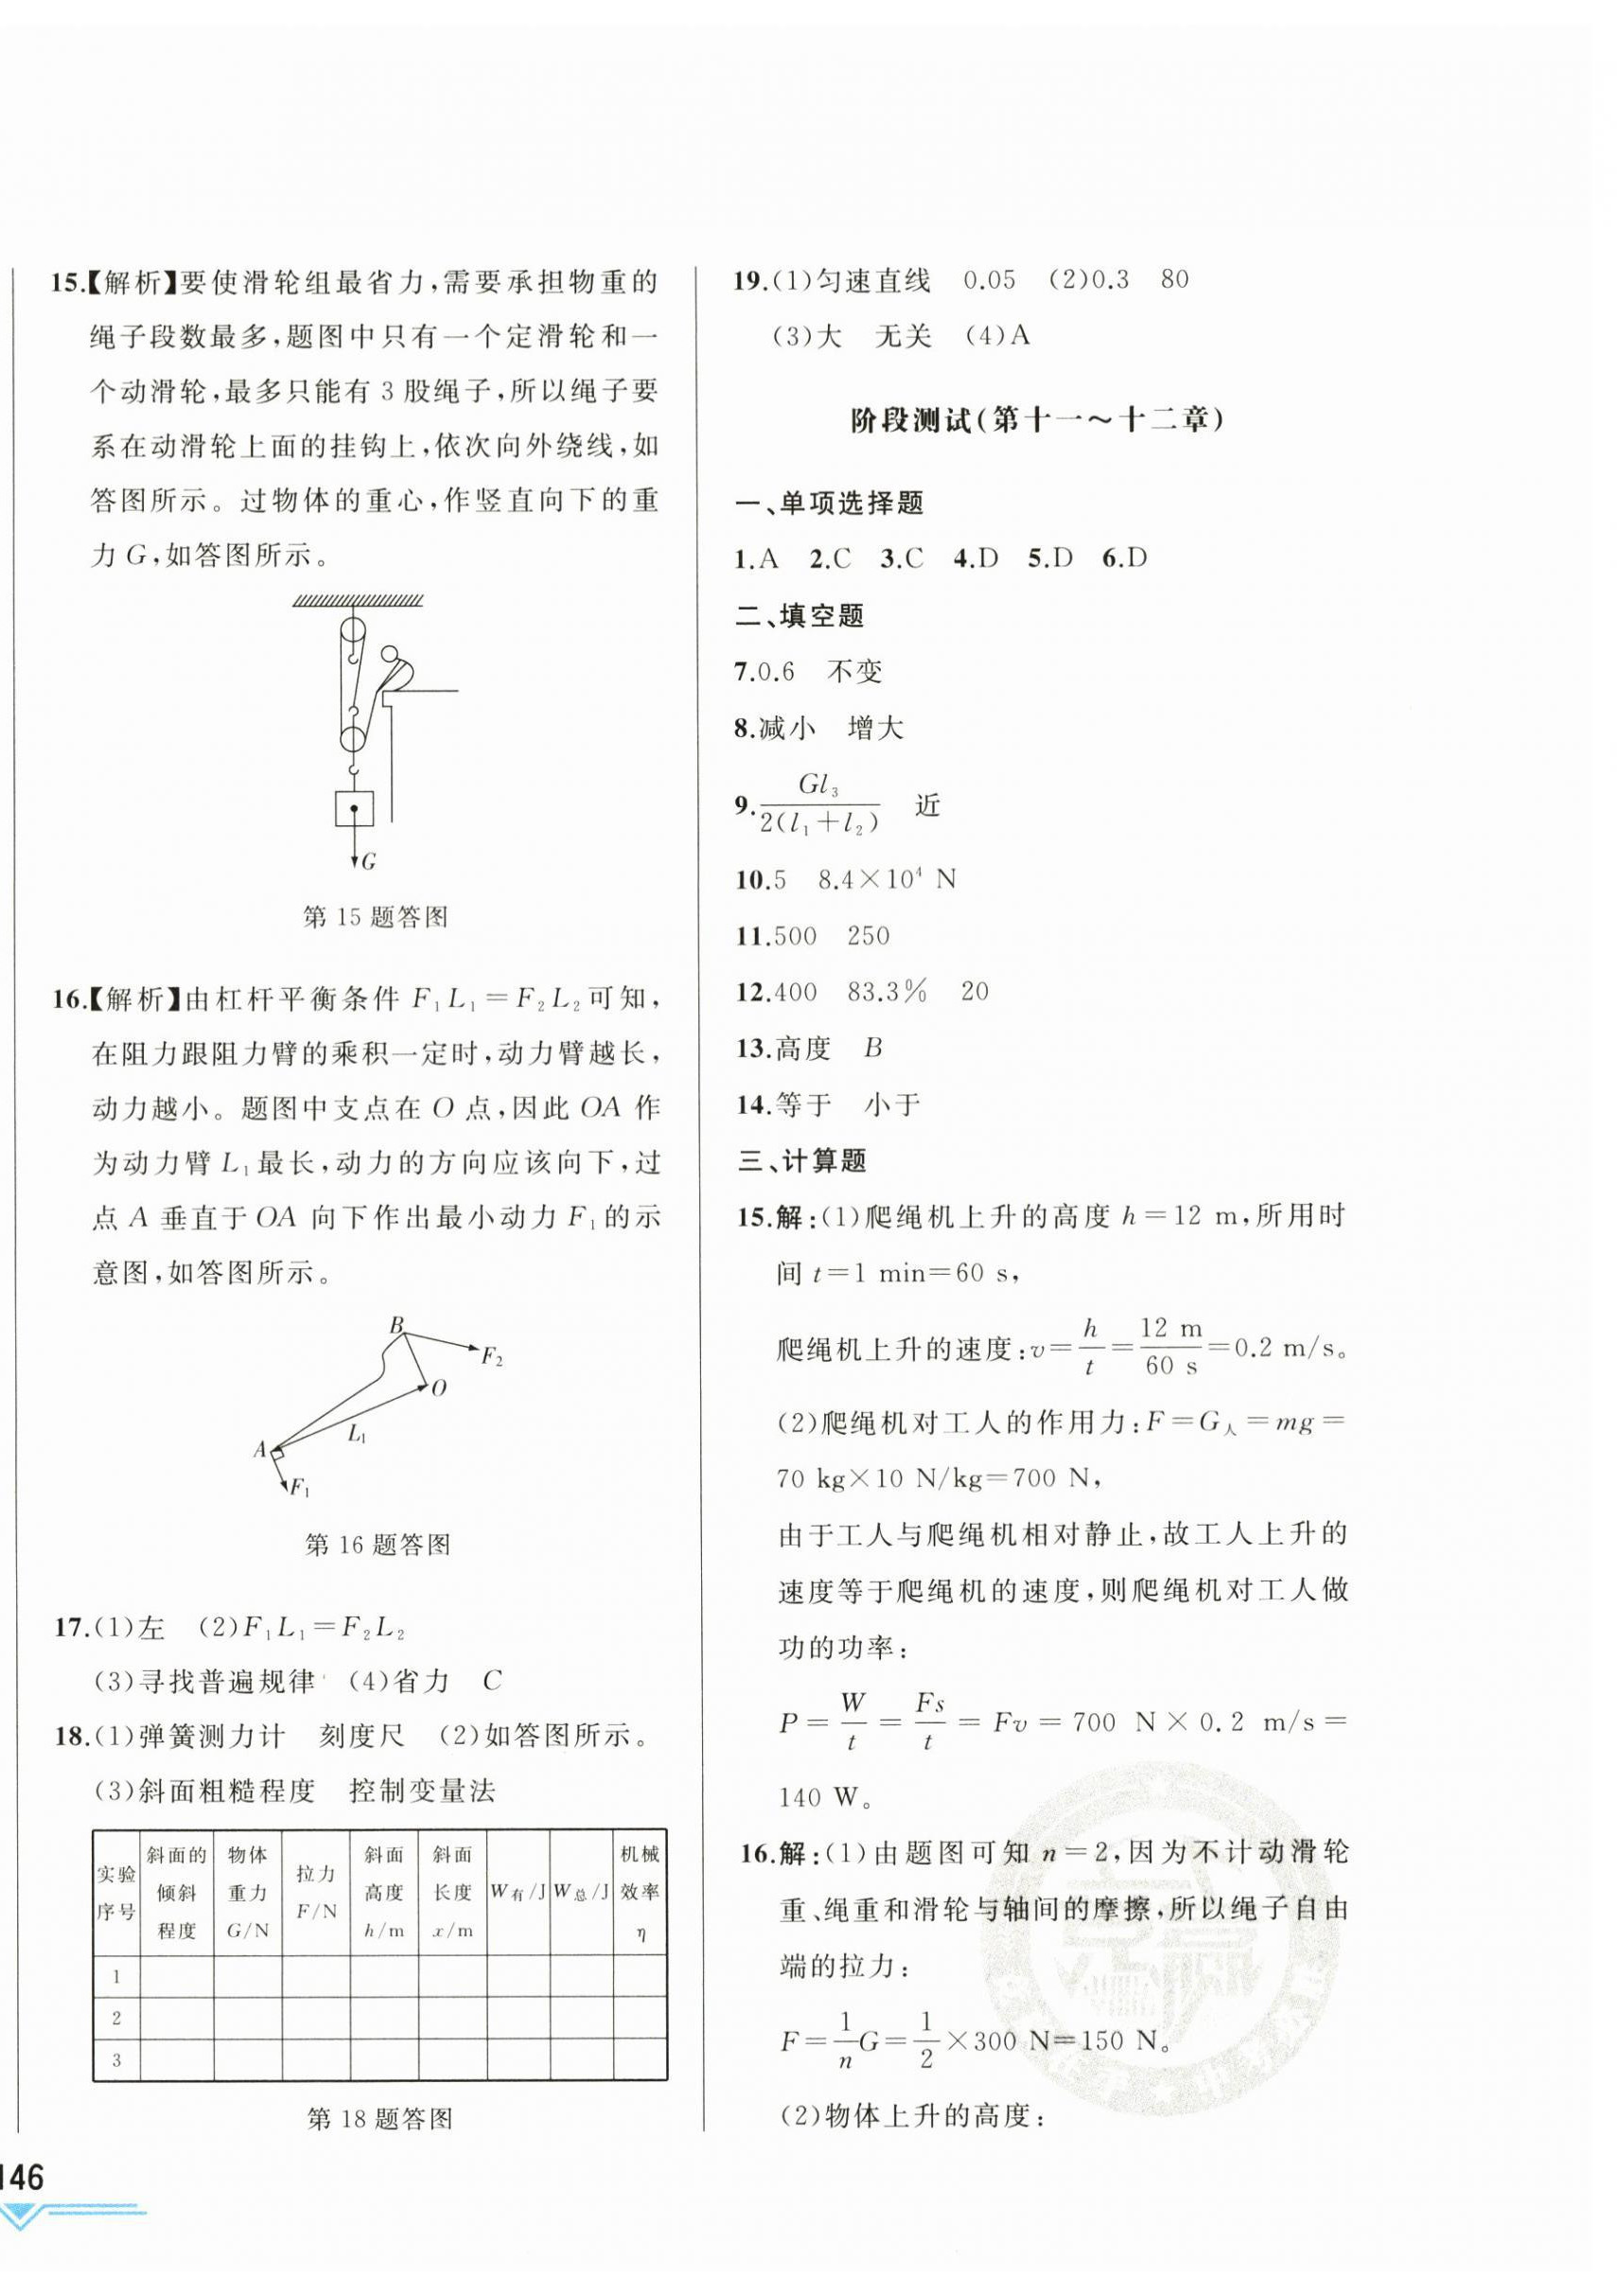 15.【解析】要使滑轮组最省力,需要承担物重的
绳子段数最多,题图中只有一个定滑轮和一
个动滑轮,最多只能有 3 股绳子,所以绳子要
系在动滑轮上面的挂钩上,依次向外绕线,如
答图所示。过物体的重心,作竖直向下的重
力 G,如答图所示。
G
第 15 题答图
16.【解析】由杠杆平衡条件 F₁L₁=F₂L₂可知,
在阻力跟阻力臂的乘积一定时,动力臂越长,
动力越小。题图中支点在 O 点,因此 OA 作
为动力臂 L₁最长,动力的方向应该向下,过
点 A 垂直于 OA 向下作出最小动力 F₁的示
意图,如答图所示。
B
F₂
O
L₁
A
F₁
第 16 题答图
17.(1)左 (2)F₁L₁=F₂L₂
(3)寻找普遍规律 (4)省力 C
18.(1)弹簧测力计 刻度尺 (2)如答图所示。
(3)斜面粗糙程度 控制变量法
实验序号 斜面的倾斜程度 物体重力G/N 拉力F/N 斜面高度h/m 斜面长度x/m W有/J W总/J 机械效率η
1
2
3
第 18 题答图
146
19.(1)匀速直线 0.05 (2)0.3 80
(3)大 无关 (4)A
阶段测试(第十一~十二章)
一、单项选择题
1.A 2.C 3.C 4.D 5.D 6.D
二、填空题
7.0.6 不变
8.减小 增大
9. Gl₃/2(l₁+l₂) 近
10.5 8.4×10⁴ N
11.500 250
12.400 83.3% 20
13.高度 B
14.等于 小于
三、计算题
15.解:(1)爬绳机上升的高度 h=12 m,所用时
间 t=1 min=60 s,
爬绳机上升的速度:v=h/t=12 m/60 s=0.2 m/s。
(2)爬绳机对工人的作用力:F=G人=mg=
70 kg×10 N/kg=700 N,
由于工人与爬绳机相对静止,故工人上升的
速度等于爬绳机的速度,则爬绳机对工人做
功的功率:
P=W/t=Fs/t=Fv=700 N×0.2 m/s=
140 W。
16.解:(1)由题图可知 n=2,因为不计动滑轮
重、绳重和滑轮与轴间的摩擦,所以绳子自由
端的拉力:
F=1/n G=1/2×300 N=150 N。
(2)物体上升的高度: